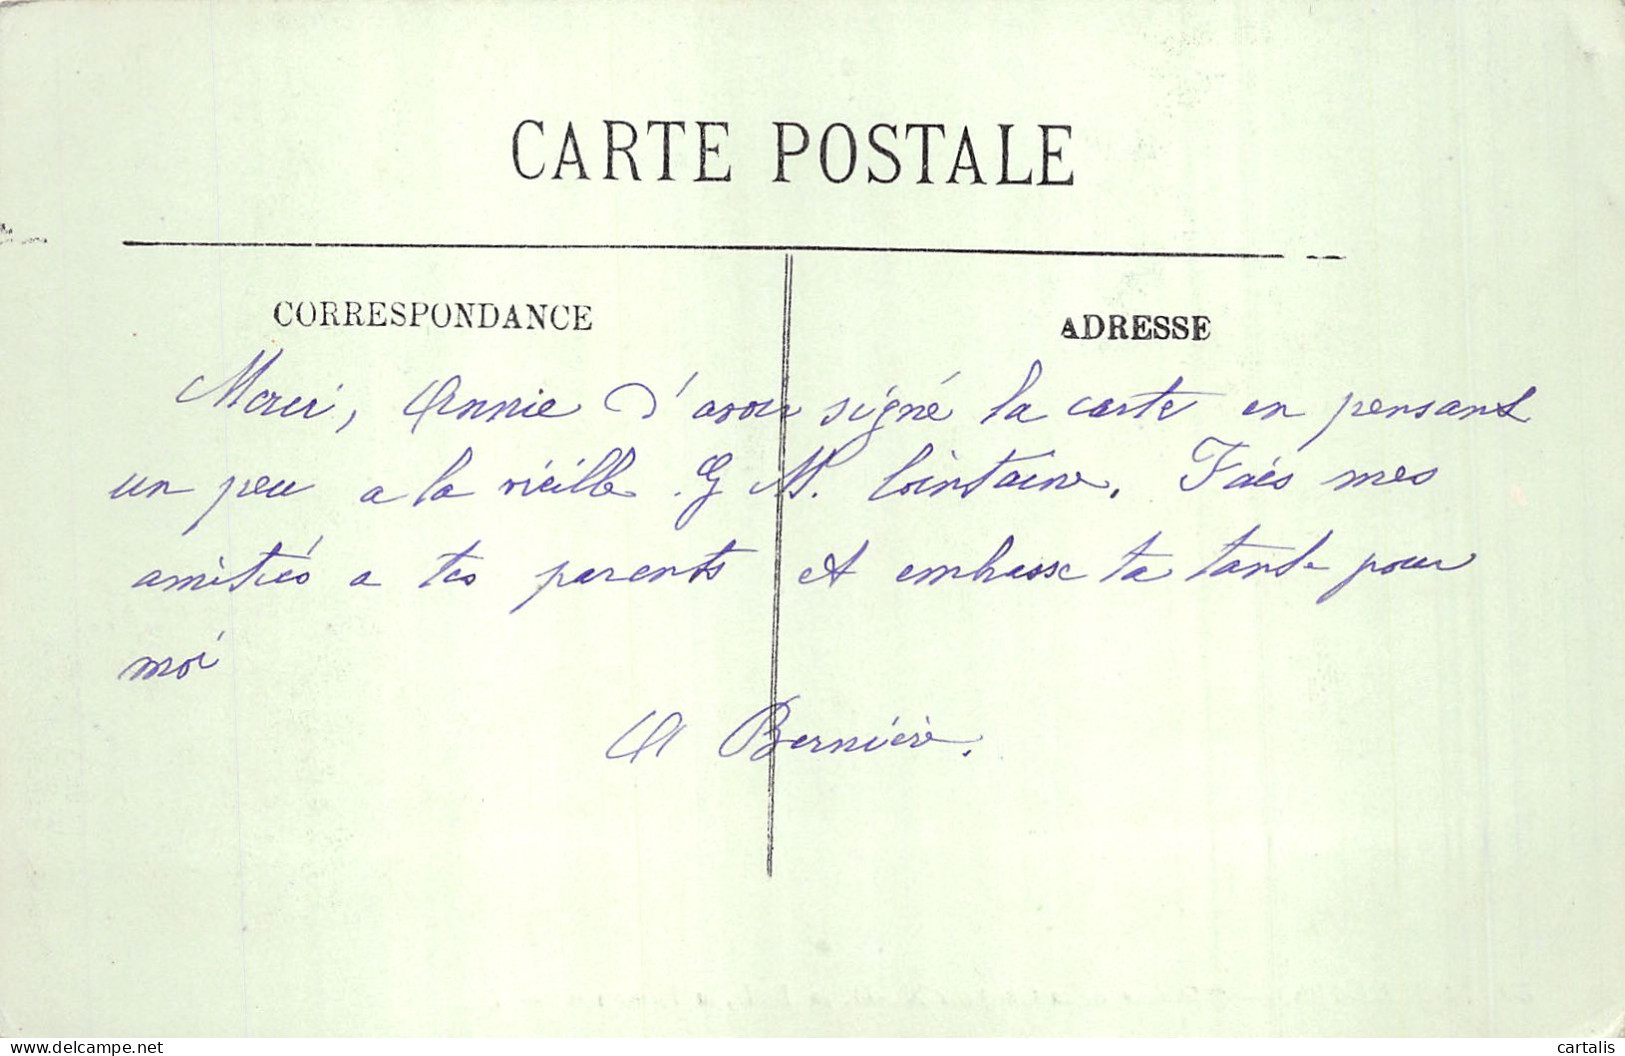 CARTE POSTALE
CORRESPONDANCE
ADRESSE
Merci, Annie d'avoir signé la carte en pensant
un peu a la vieille G M. lointaine. Fais mes
amitiés a tes parents et embrasse ta tante pour
moi
A Bernière.
cartalis
www.delcampe.net